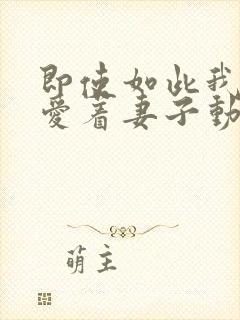 即使如此我
愛着妻子動
萌主